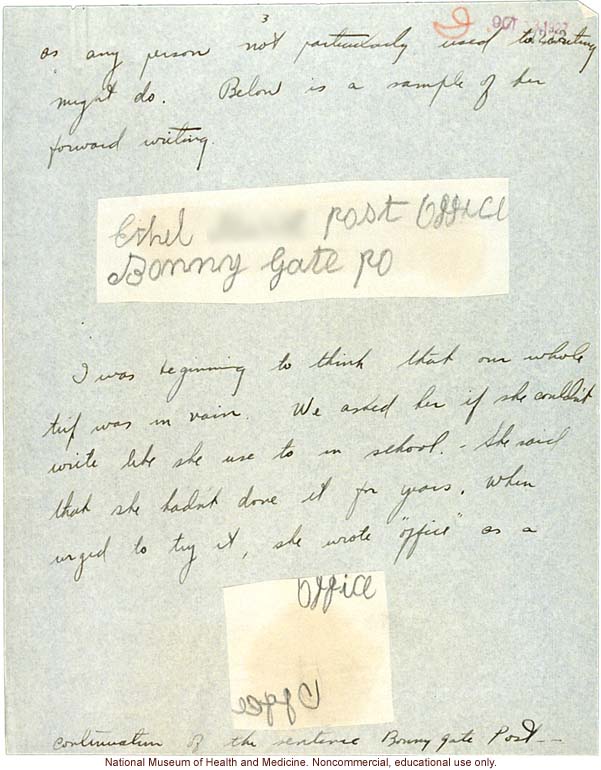 3
OCT
as any person not particularly used to writing
might do. Below is a sample of her
forward writing.
Ethel Post Office
Bonny Gate PO
I was beginning to think that our whole
trip was in vain. We asked her if she couldn't
write like she use to in school. - She said
that she hadn't done it for years. When
urged to try it, she wrote "office" as a
Office
Office
continuation of the sentence Bonny gate Post —
National Museum of Health and Medicine. Noncommercial, educational use only.